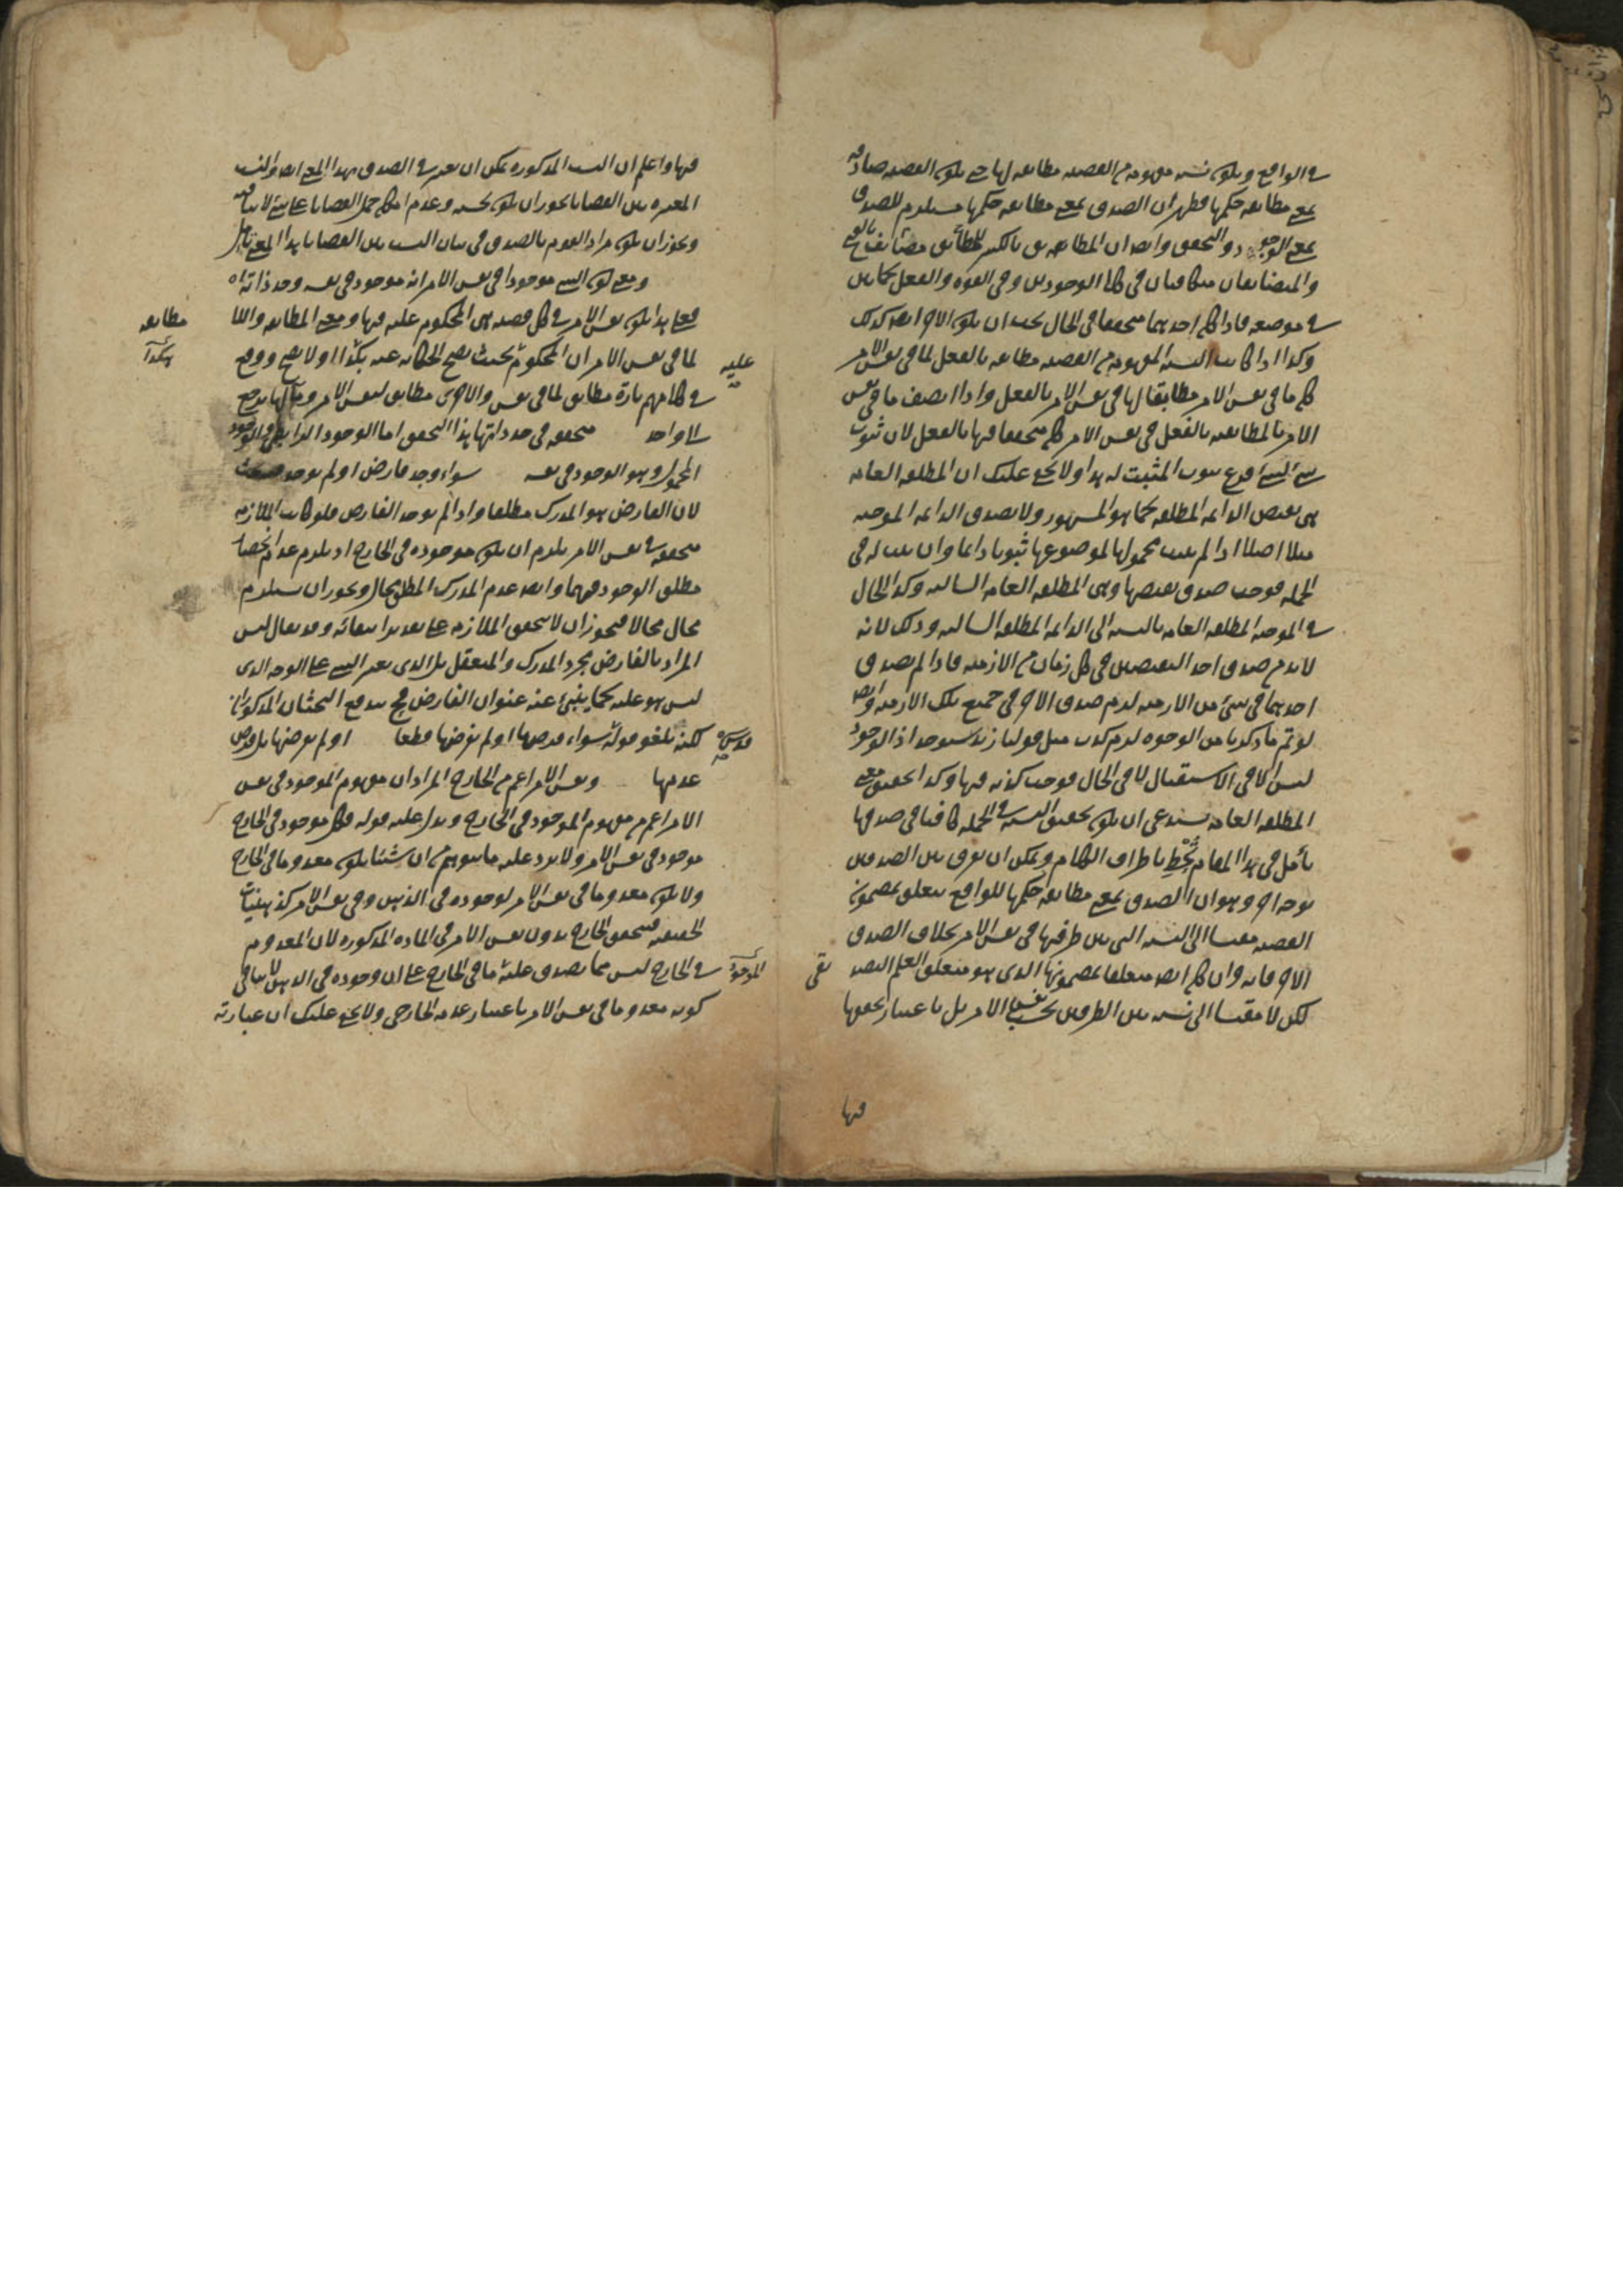 في الواقع ويكون نسبه مفهومه من القضيه مطابقه لها حتى يكون القضيه صادقه
بمعنى مطابقه حكمها فظهر ان الصدق بمعنى مطابقه حكمها مستلزم للصدق
بمعنى الوجود والتحقق وايضا ان المطابقه بالكسر للمطابق مضائف بالفتح
والمتضايفان متكافيان في كلا الوجودين وفي القوه والفعل كما بين
في موضعه فاذا كان احدهما متحققا في الحال يجب ان يكون الاخر ايضا كذلك
وكذا اذا كانت النسبه المفهومه من القضيه مطابقه بالفعل لما في نفس الامر
كان ما في نفس الامر مطابقا لها في نفس الامر بالفعل واذا اتصف ما في نفس
الامر بالمطابقه بالفعل في نفس الامر كان متحققا فيها بالفعل لان ثبوت
شيء لشيء فرع ثبوت المثبت له هذا ولا يخفى عليك ان المطلقه العامه
هي نقيض الدائمه المطلقه كما هو المشهور ولا يصدق الدائمه الموجبه
مثلا اصلا اذا لم يثبت محمولها لموضوعها ثبوتا دائما وان يثبت له في
الجمله فوجب صدق نقيضها وهي المطلقه العامه السالبه وكذا الحال
في الموجبه المطلقه العامه بالنسبه الى الدائمه المطلقه السالبه وذلك لانه
لا بد من صدق احد النقيضين في كل زمان من الازمنه فاذا لم يصدق
احدهما في شئ من الازمنه لزم صدق الاخر في جميع تلك الازمنه وايضا
لو تم ما ذكرنا من الوجوه لزم كذب مثل قولنا زيد سيوجد اذ الوجود
ليس الا في الاستقبال لا في الحال فوجب كذبه فيها وكذا تحقيق معنى
المطلقه العامه يستدعي ان يكون تحقيق النسبه في الجمله كافيا في صدقها
تأمل في هذا المقام تحط باطراف الكلام ويمكن ان يفرق بين الصدقين
بوجه اخر وهو ان الصدق بمعنى مطابقه حكمها للواقع يتعلق بمضمون
القضيه مقيسا الى النسبه التي بين طرفيها في نفس الامر بخلاف الصدق
الاخر فانه وان كان ايضا متعلقا بمضمونها الذي هو متعلق العلم التصد
يقي
لكن لا مقيسا الى نسبه بين الطرفين بحسب نفس الامر بل باعتبار تحققها
فيها
فيها واعلم ان النسب المذكوره يمكن ان يعتبر في الصدق بهذا المعنى ايضا والنسب
المعتبره بين القضايا يجوز ان يكون بحسبه وعدم امكان حمل القضايا على شئ لا ينافيه
ويجوز ان يكون مراد القوم بالصدق في بيان النسب بين القضايا هذا المعنى تأمل
ومعنى كون الشيء موجودا في نفس الامر انه موجود في نفسه وحد ذاته اه
فعلى هذا يكون نفس الامر في كل قضيه هي المحكوم عليه فيها ومعنى المطابقه واللا
مطابقه
لما في نفس الامر ان المحكوم بحيث يصح الحكايه عنه بكذا او لا يصح ووقع
عليه
هكذا
في كلامهم تارة مطابق لما في نفس والاخرى مطابق لنفس الامر ومآلها يرجع
الى واحد متحققه في حد ذاتها بهذا التحقق اما الوجود الرابطي او الوجود
المحمولى وهو الوجود في نفسه سواء وجد فارض او لم يوجد
لان الفارض هو المدرك مطلقا واذا لم يوجد الفارض فلو كانت الملازمه
متحققه في نفس الامر يلزم ان يكون موجوده في الخارج او يلزم عدم انحصار
مطلق الوجود فيهما وايضا عدم المدرك المطلق محال ويجوز ان يستلزم
محال محالا فيجوز ان لا يتحقق الملازمه على تقدير انتفائه وقد يقال ليس
المراد بالفارض مجرد المدرك والمتعقل بل الذي يعتبر الشيء على الوجه الذي
ليس هو عليه كما ينبئ عنه عنوان الفارض فح يندفع البحثان المذكوران
لكنه يلغو قوله سواء فرضها او لم يفرضها قطعا او لم يفرضها بل فرض
قدس سره
عدمها ونفس الامر اعم من الخارج المراد ان مفهوم الموجود في نفس
الامر اعم من مفهوم الموجود في الخارج ويدل عليه قوله فكل موجود في الخارج
موجود في نفس الامر ولا يرد عليه ما يتوهم من ان شئا يكون معدوما في الخارج
ولا يكون معدوما في نفس الامر لوجوده في الذهن وفي نفس الامر كذهنيات
الحقيقه فيتحقق الخارج بدون نفس الامر في الماده المذكوره لان المعدوم
في الخارج ليس مما يصدق عليه ما في الخارج على ان وجوده في الذهن لا ينافي
الموجود
كونه معدوما في نفس الامر باعتبار عدمه الخارجي ولا يخفى عليك ان عبارته